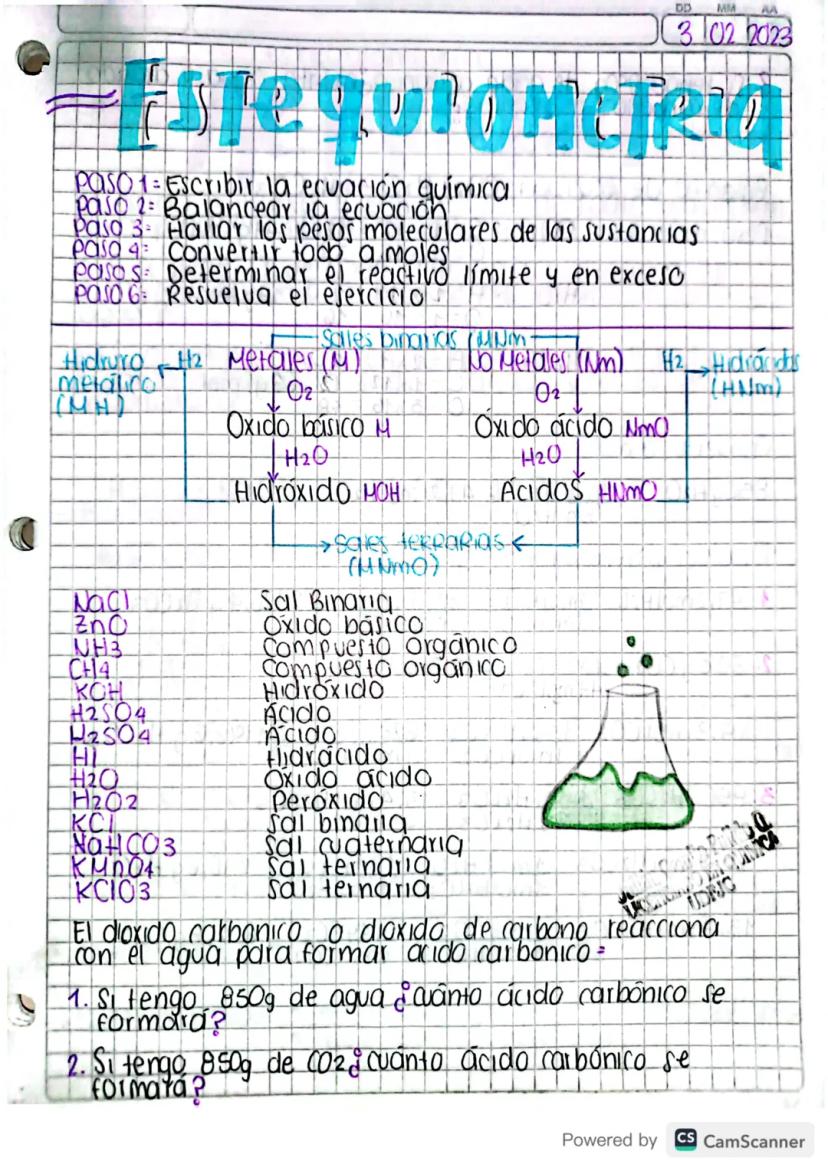 DD MM AA
3 02 2023
Estequiometria
Paso 1: Escribir la ecuación química
Paso 2: Balancear la ecuación
Paso 3: Hallar los pesos moleculares de las sustancias
Paso 4: Convertir todo a moles
Paso 5: Determinar el reactivo límite y en exceso
Paso 6: Resuelva el ejercicio
Sales binarias (MNm
Hidruro metálico (MH)
H2
Metales (M)
No Metales (Nm)
H2
Hidrácidos (HNm)
O2
O2
Oxido básico M
Óxido ácido NmO
H2O
H2O
Hidróxido MOH
Ácidos HNmO
Sales terrarias
(MNmO)
NaCl Sal Binaria
ZnO Oxido básico
NH3 Compuesto orgánico
CH4 Compuesto orgánico
KOH Hidróxido
H2SO4 Ácido
H2SO4 Ácido
HI Hidrácido
H2O Óxido ácido
H2O2 Peróxido
KCl Sal binaria
NaHCO3 Sal cuaternaria
KMnO4 Sal ternaria
KClO3 Sal ternaria
El dioxido carbonico o dioxido de carbono reacciona
con el agua para formar acido carbonico=
1. Si tengo 850g de agua ¿cuánto ácido carbónico se
formará?
2. Si tengo 850g de CO2 ¿cuánto ácido carbónico se
formará?
Powered by CS CamScanner